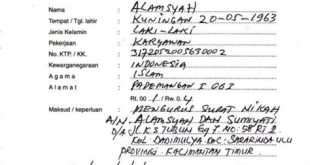 Nama : ALAMSYAH
Tempat / Tgl. lahir : KUNINGAN 20-05-1963
Jenis Kelamin : LAKI-LAKI
Pekerjaan : KARYAWAN
No. KTP. / KK. : 3172052005630002
Kewarganegaraan : INDONESIA
A g a m a : ISLAM
A l a m a t : PADEMANGAN I GG I
Rt. 00 / Rw. 0
Maksud / keperluan : MENGURUS SURAT NIKAH
A/N. ALAMSYAH DAN SUMIYATI
D/A JL K.S TUBUN Gg 7 NO: 98 RT 2
KEL DADIMULYA KEC: SAMARINDA ULU
PROVINSI KALIMANTAN TIMUR